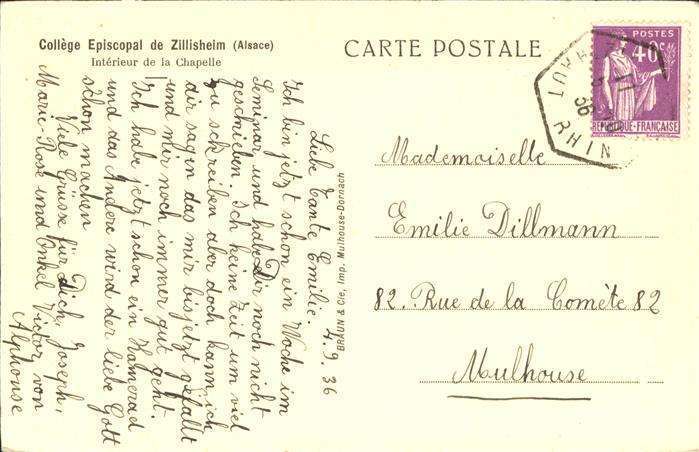 Collège Episcopal de Zillisheim (Alsace)
Intérieur de la Chapelle
CARTE POSTALE
POSTES
40c
REPUBLIQUE-FRANÇAISE
HAUT RHIN
36
4.9.36
Liebe Tante Emilie.
Ich bin jetzt schon ein Woche im
Seminar und habe Dir noch nicht
geschrieben. Ich keine Zeit um viel
zu schreiben aber doch kann ich
dir sagen das mir bis jetzt gefällt
und mir noch immer gut geht.
Ich habe jetzt schon ein Kamerad
und das Andere wird der liebe Gott
schon machen
Viele Grüsse für Dich, Joseph,
Marie-Rose und Onkel Victor von
Alphonse
BRAUN & Cie, Imp. Mulhouse-Dornach
Mademoiselle
Emilie Dillmann
82. Rue de la Comète 82
Mulhouse